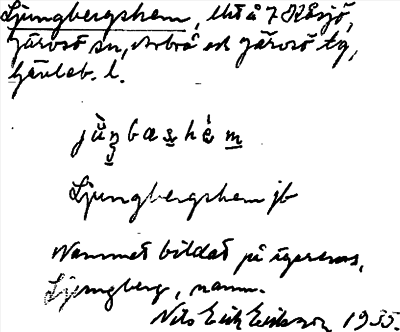 Ljungbergshem, lht å 7 Råsjö,
Järvsö sn, Arbrå och Järvsö tg,
Gävleb. l.
jùŋbæshém
Ljungbergshem jb
Namnet bildat på ägarens,
Ljungberg, namn.
Nils Erik Eriksson 1935.